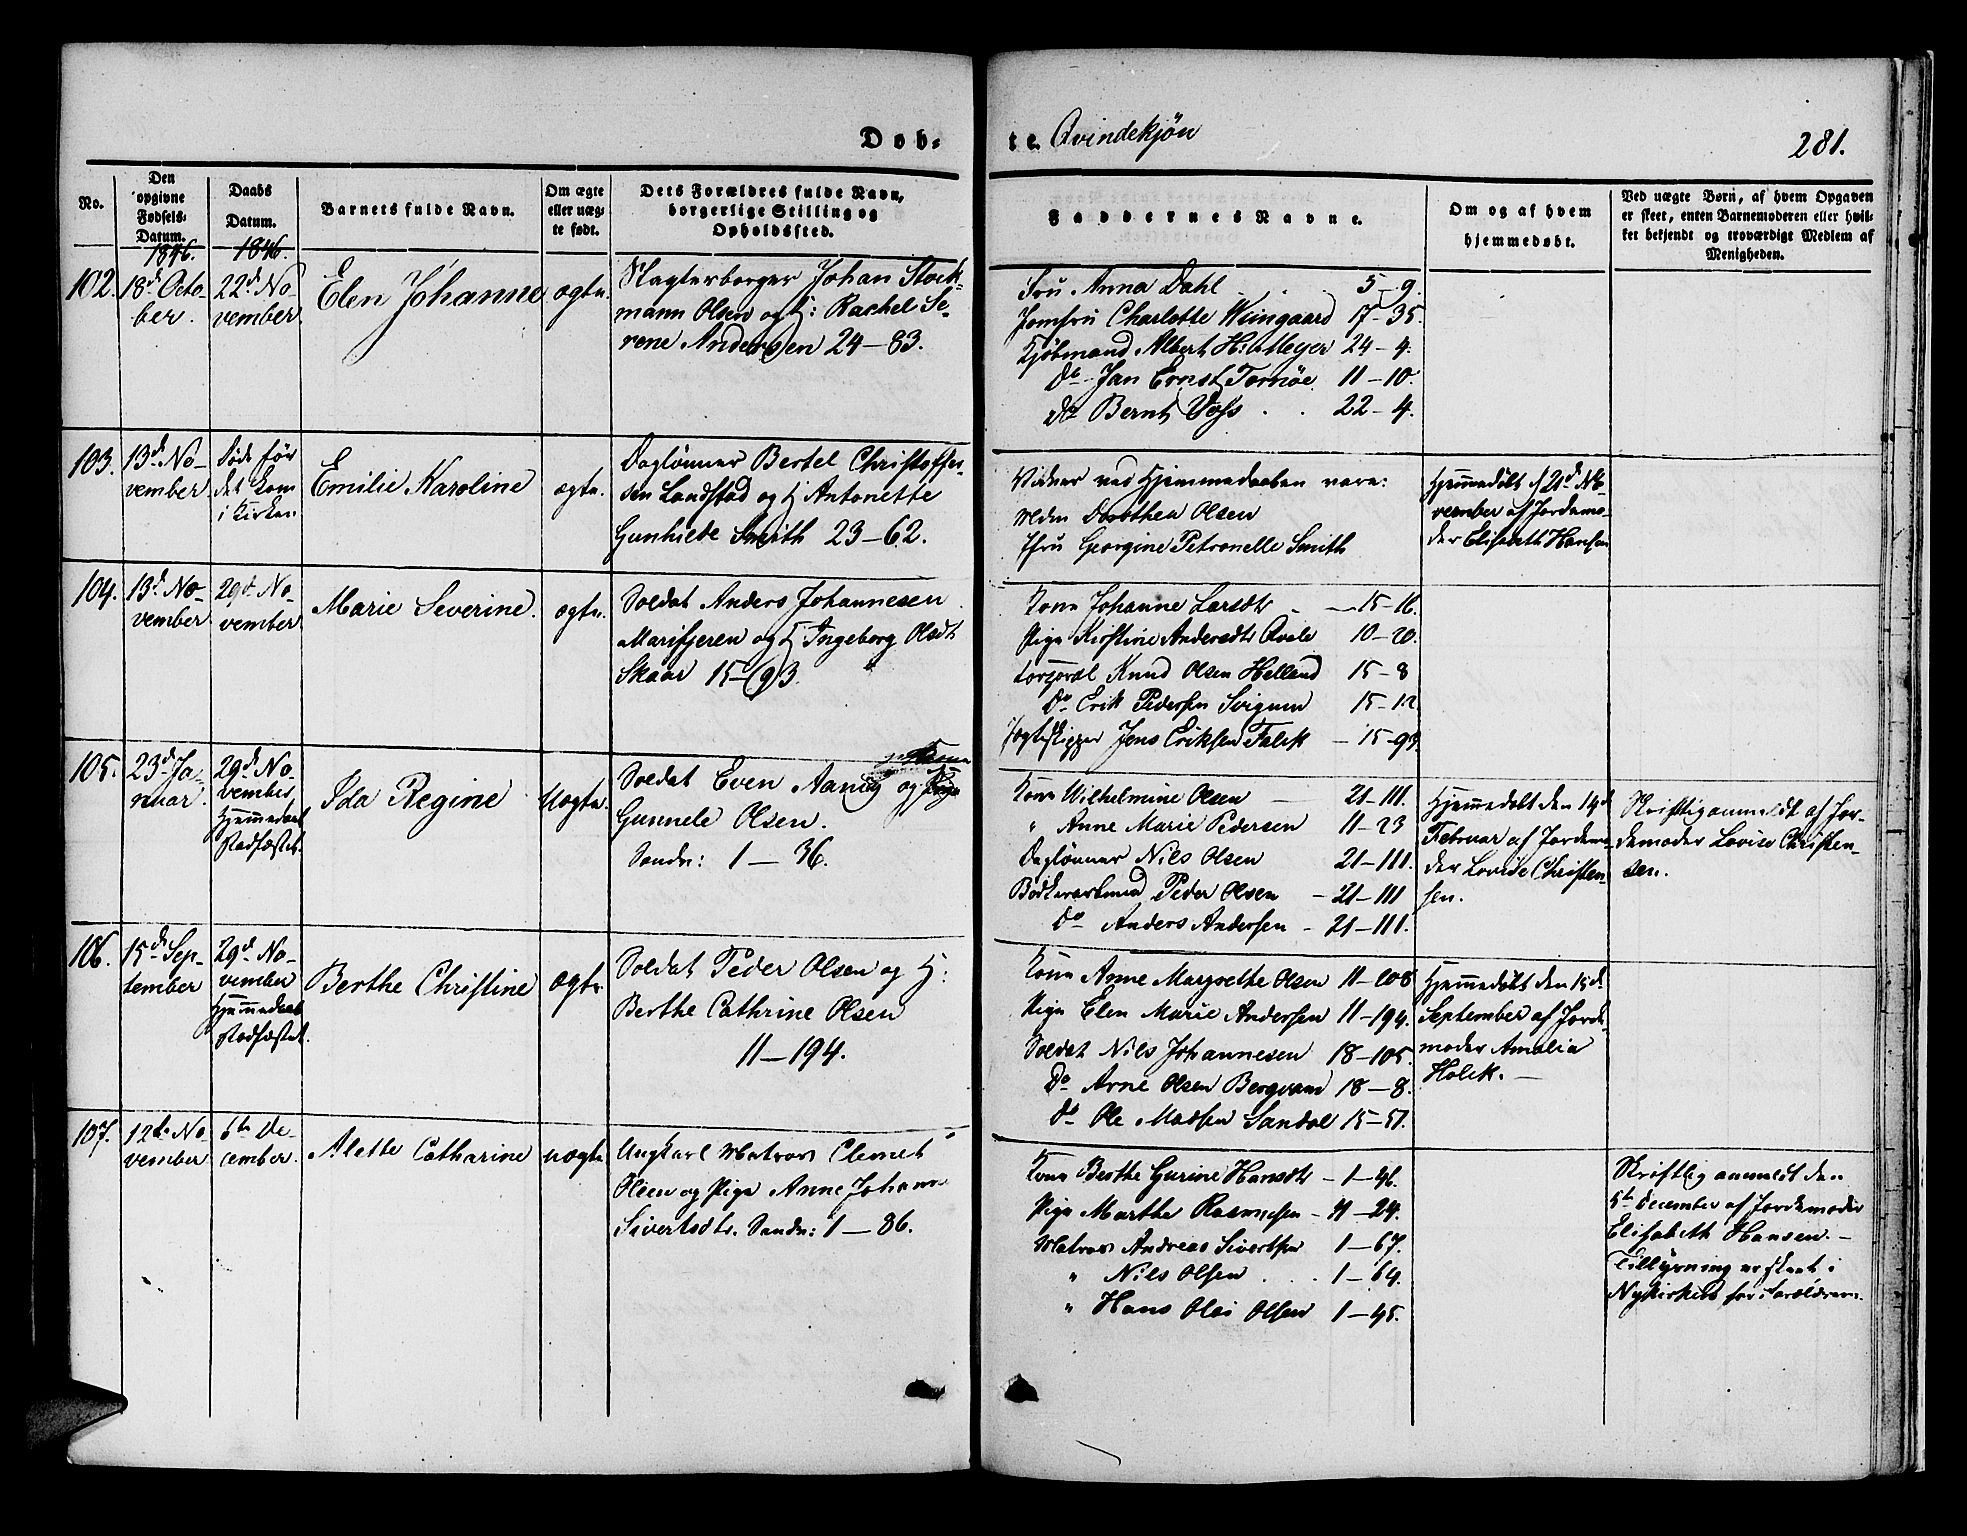 Døb-
te. Qvindekjön
281.
No.
Den opgivne Fødsels-Datum.
Daabs Datum.
Barnets fulde Navn.
Om ægte eller uæg-te født.
Dets Forældres fulde Navn, borgerlige Stilling og Opholdssted.
Faddernes Navne.
Om og af hvem hjemmedøbt.
Ved uægte Børn, af hvem Opgaven er skeet, enten Barnemoderen eller hvil-ket bekjendt og troværdigt Medlem af Menigheden.
1846.
1846.
102.
18d Octo-
ber.
22d No-
vember
Elen Johanne
ægte.
Slagterborger Johan Stock-
mann Olsen og H: Rachel Se-
rene Andersen 24-83.
Fru Anna Dahl 5-9.
Jomfru Charlotte Wiingaard 17-35.
Kjøbmand Albert H: Meyer 24-4.
Do Jan Ernst Tornöe 11-10.
Do Bernt Voss 22-4.
103.
13d No-
vember
Døde før
det kom
i Kirken
Emilie Karoline
ægte.
Daglønner Bertel Christoffer-
sen Landstad og H Antonette
Gunhilde Smith 23-62.
Vidner ved Hjemmedaaben vare:
Mdm Dorothea Olsen
Jfru Georgine Petronelle Smith
Hjemmedøbt d 21d No-
vember af Jordemo-
der Elisabeth Hansen
104.
13d No-
vember
29d No-
vember
Marie Severine.
ægte.
Soldat Anders Johannesen
Marifjeren og H Ingeborg Olsdt
Skaar 15-93.
Kone Johanne Larsdtr 15-16.
Pige Kirstine Andersdtr Qvale 10-20.
Corporal Knud Olsen Helland 15-8
Do Erik Pedersen Svignum 15-12
Jægteskipper Jens Eriksen Falck 15-93.
105.
23d Ja-
nuar.
29d No-
vember
Hjemmedaab
Stadfæstet.
Ida Regine
Uægte.
Soldat Even Aamö og Pige
Gunnele Olsen.
Sandv: 1-36.
Kone Wilhelmine Olsen 21-111.
" Anne Marie Pedersen 11-23
Daglønner Nils Olsen 21-111.
Bødkersvend Peder Olsen 21-111
Do Anders Andersen 21-111.
Hjemmedøbt den 14d
Februar af Jordemo-
der Lovise Christen-
sen.
Skriftlig anmeldt af Jor-
demoder Lovise Christen-
sen.
106.
15d Sep-
tember
29d No-
vember
Hjemmedaab
Stadfæstet.
Berthe Christine
ægte
Soldat Peder Olsen og H:
Berthe Cathrine Olsen
11-194.
Kone Anne Margrethe Olsen 11-208
Pige Elen Marie Andersen 11-194.
Soldat Nils Johannesen 18-105.
Do Arne Olsen Bergvand 18-8.
Do Ole Madsen Sandal 15-57.
Hjemmedøbt den 15d
September af Jorde-
moder Amalia
Holck.
107.
12te No-
vember
6te De-
cember.
Alette Catharine
uægte
Ungkarl Matros Clemet
Olsen og Pige Anne Johanne
Sivertsdtr. Sandv: 1-86.
Kone Berthe Gurine Hansdtr 1-46.
Pige Marthe Rasmusen 11-24.
Matros Andreas Sivertsen 1-67.
" Nils Olsen 1-64.
" Hans Olai Olsen 1-45.
Skriftlig anmeldt den
5te December af Jordemoder
Elisabeth Hansen.
Tillysning er skeet i
Nykirken for Forældrene.